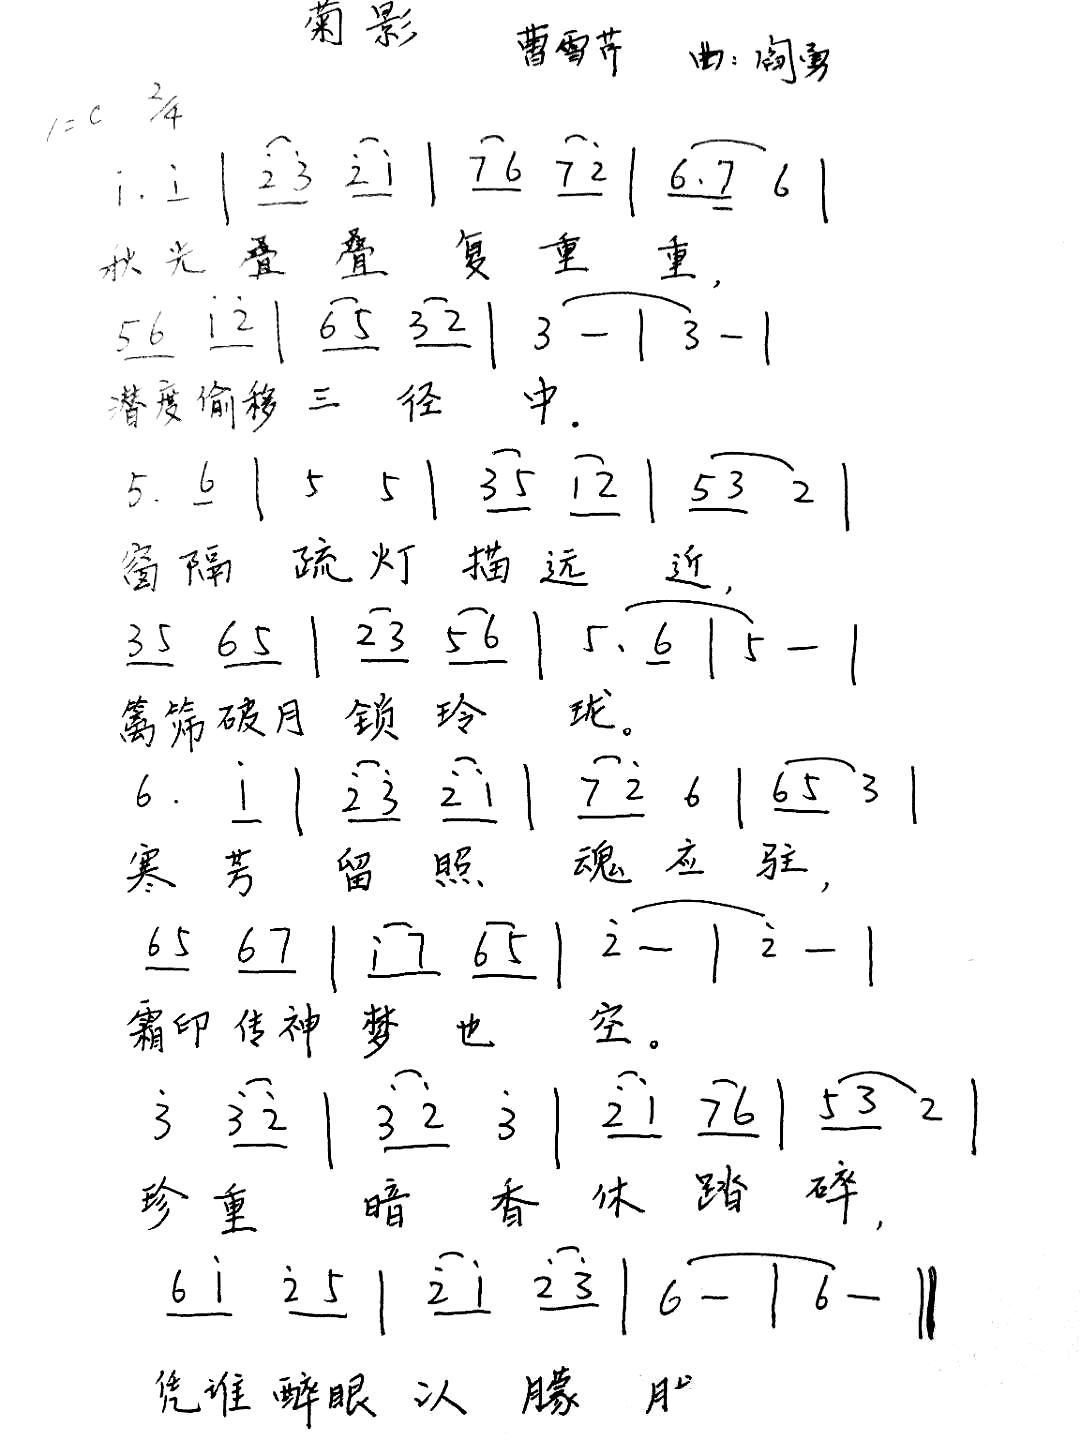 菊影
曹雪芹 曲:阎勇
1=C 2/4
i. i | 2̇3̇ 2̇i | 76 72̇ | 6.7 6 |
秋光叠叠复重重,
56 i2̇ | 65 32 | 3 — | 3 — |
潜度偷移三径中.
5. 6 | 5 5 | 35 12 | 53 2 |
窗隔疏灯描远近,
35 65 | 23 56 | 5. 6 | 5 — |
篱筛破月锁玲珑。
6. i | 2̇3̇ 2̇i | 72̇ 6 | 65 3 |
寒芳留照魂应驻,
65 67 | i7 65 | 2̇ — | 2̇ — |
霜印传神梦也空。
3̇ 3̇2̇ | 3̇2̇ 3̇ | 2̇i 76 | 53 2 |
珍重暗香休踏碎,
6i 2̇5 | 2̇i 2̇3̇ | 6 — | 6 — ||
凭谁醉眼认朦